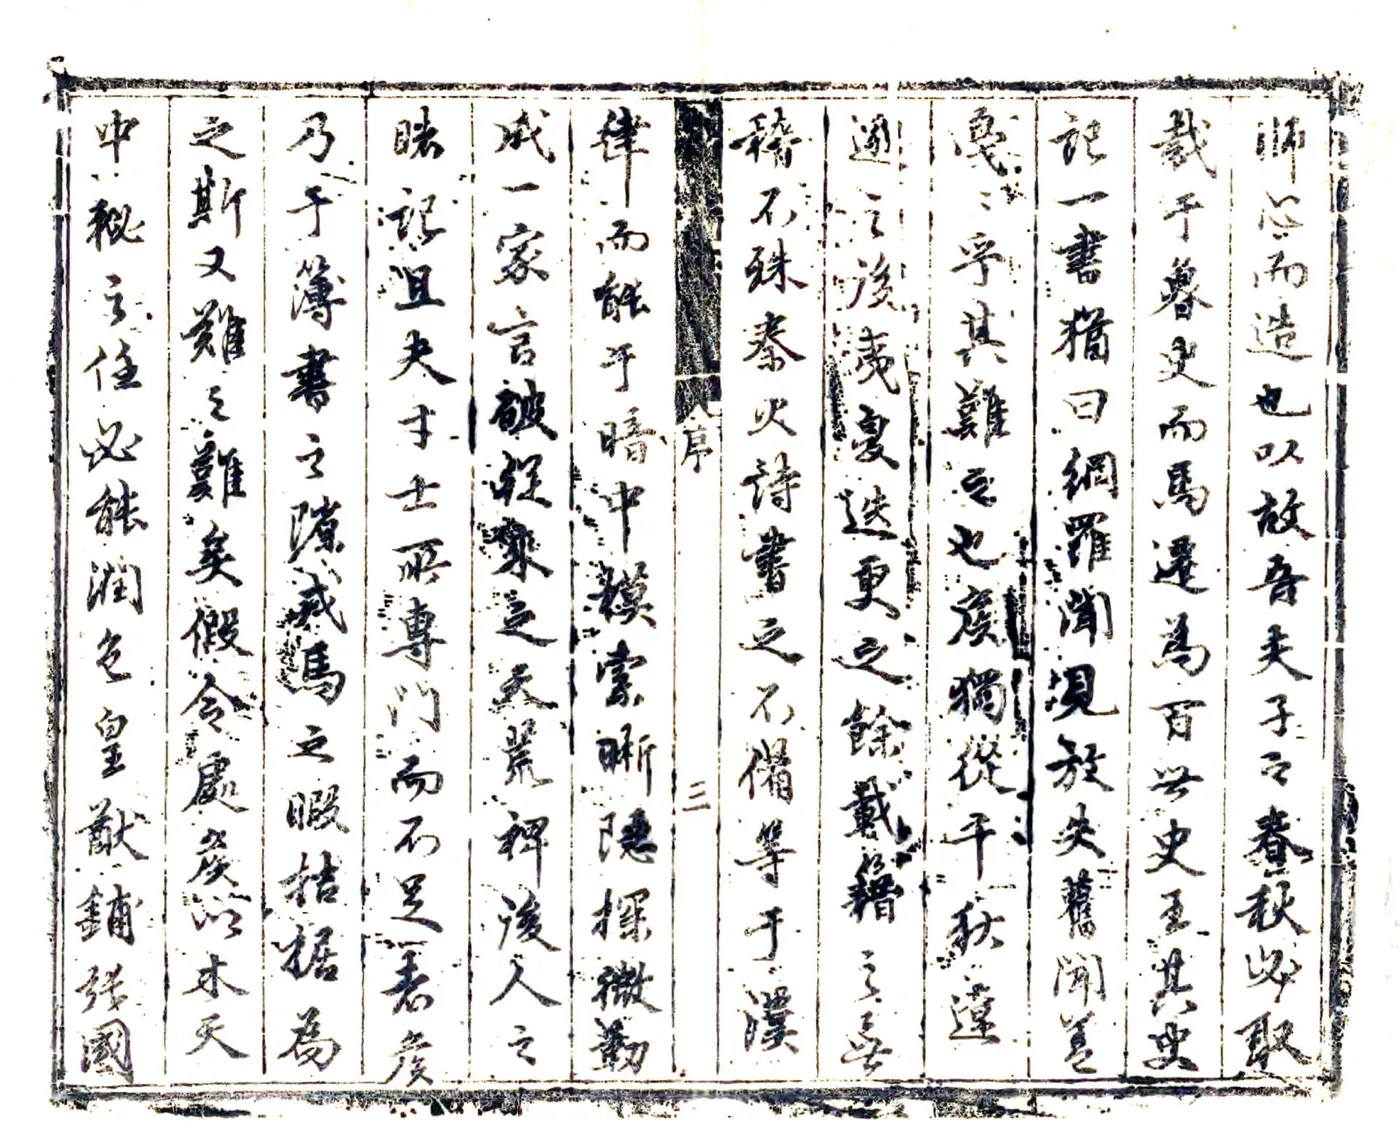 師心而造也以故吾夫子之春秋必取
裁于魯史而馬遷為百世史王其史
記一書猶曰網羅聞見放失舊聞蓋
戛〻乎其難之也侯獨從千秋蓬
之後夷憂迭更之餘載籍之無
稽不殊秦火詩書之不備等于漢
律而能于暗中模索晰隱探微勒
成一家言破從來之天荒裨後人之
睹記沮夫才士所專門而不足者侯
乃于簿書之隙戎馬之暇拮据為
之斯又難之難矣假令處侯以木天
中秘之任必能潤色皇猷鋪張國
序
三